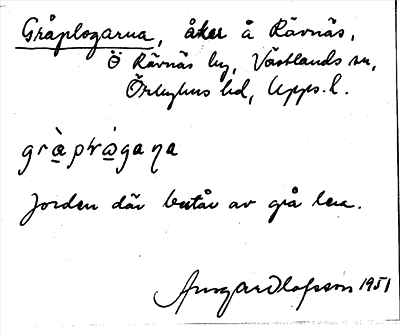 Gråplogarna, åker å Rävnäs,
Ö Rävnäs by, Västlands sn,
Örbyhus hd, Upps. l.
gràplògaṇa
Jorden där består av grå lera.
Ansgar Olofsson 1951